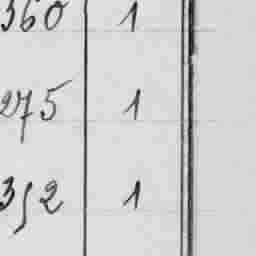 360 1
275 1
352 1